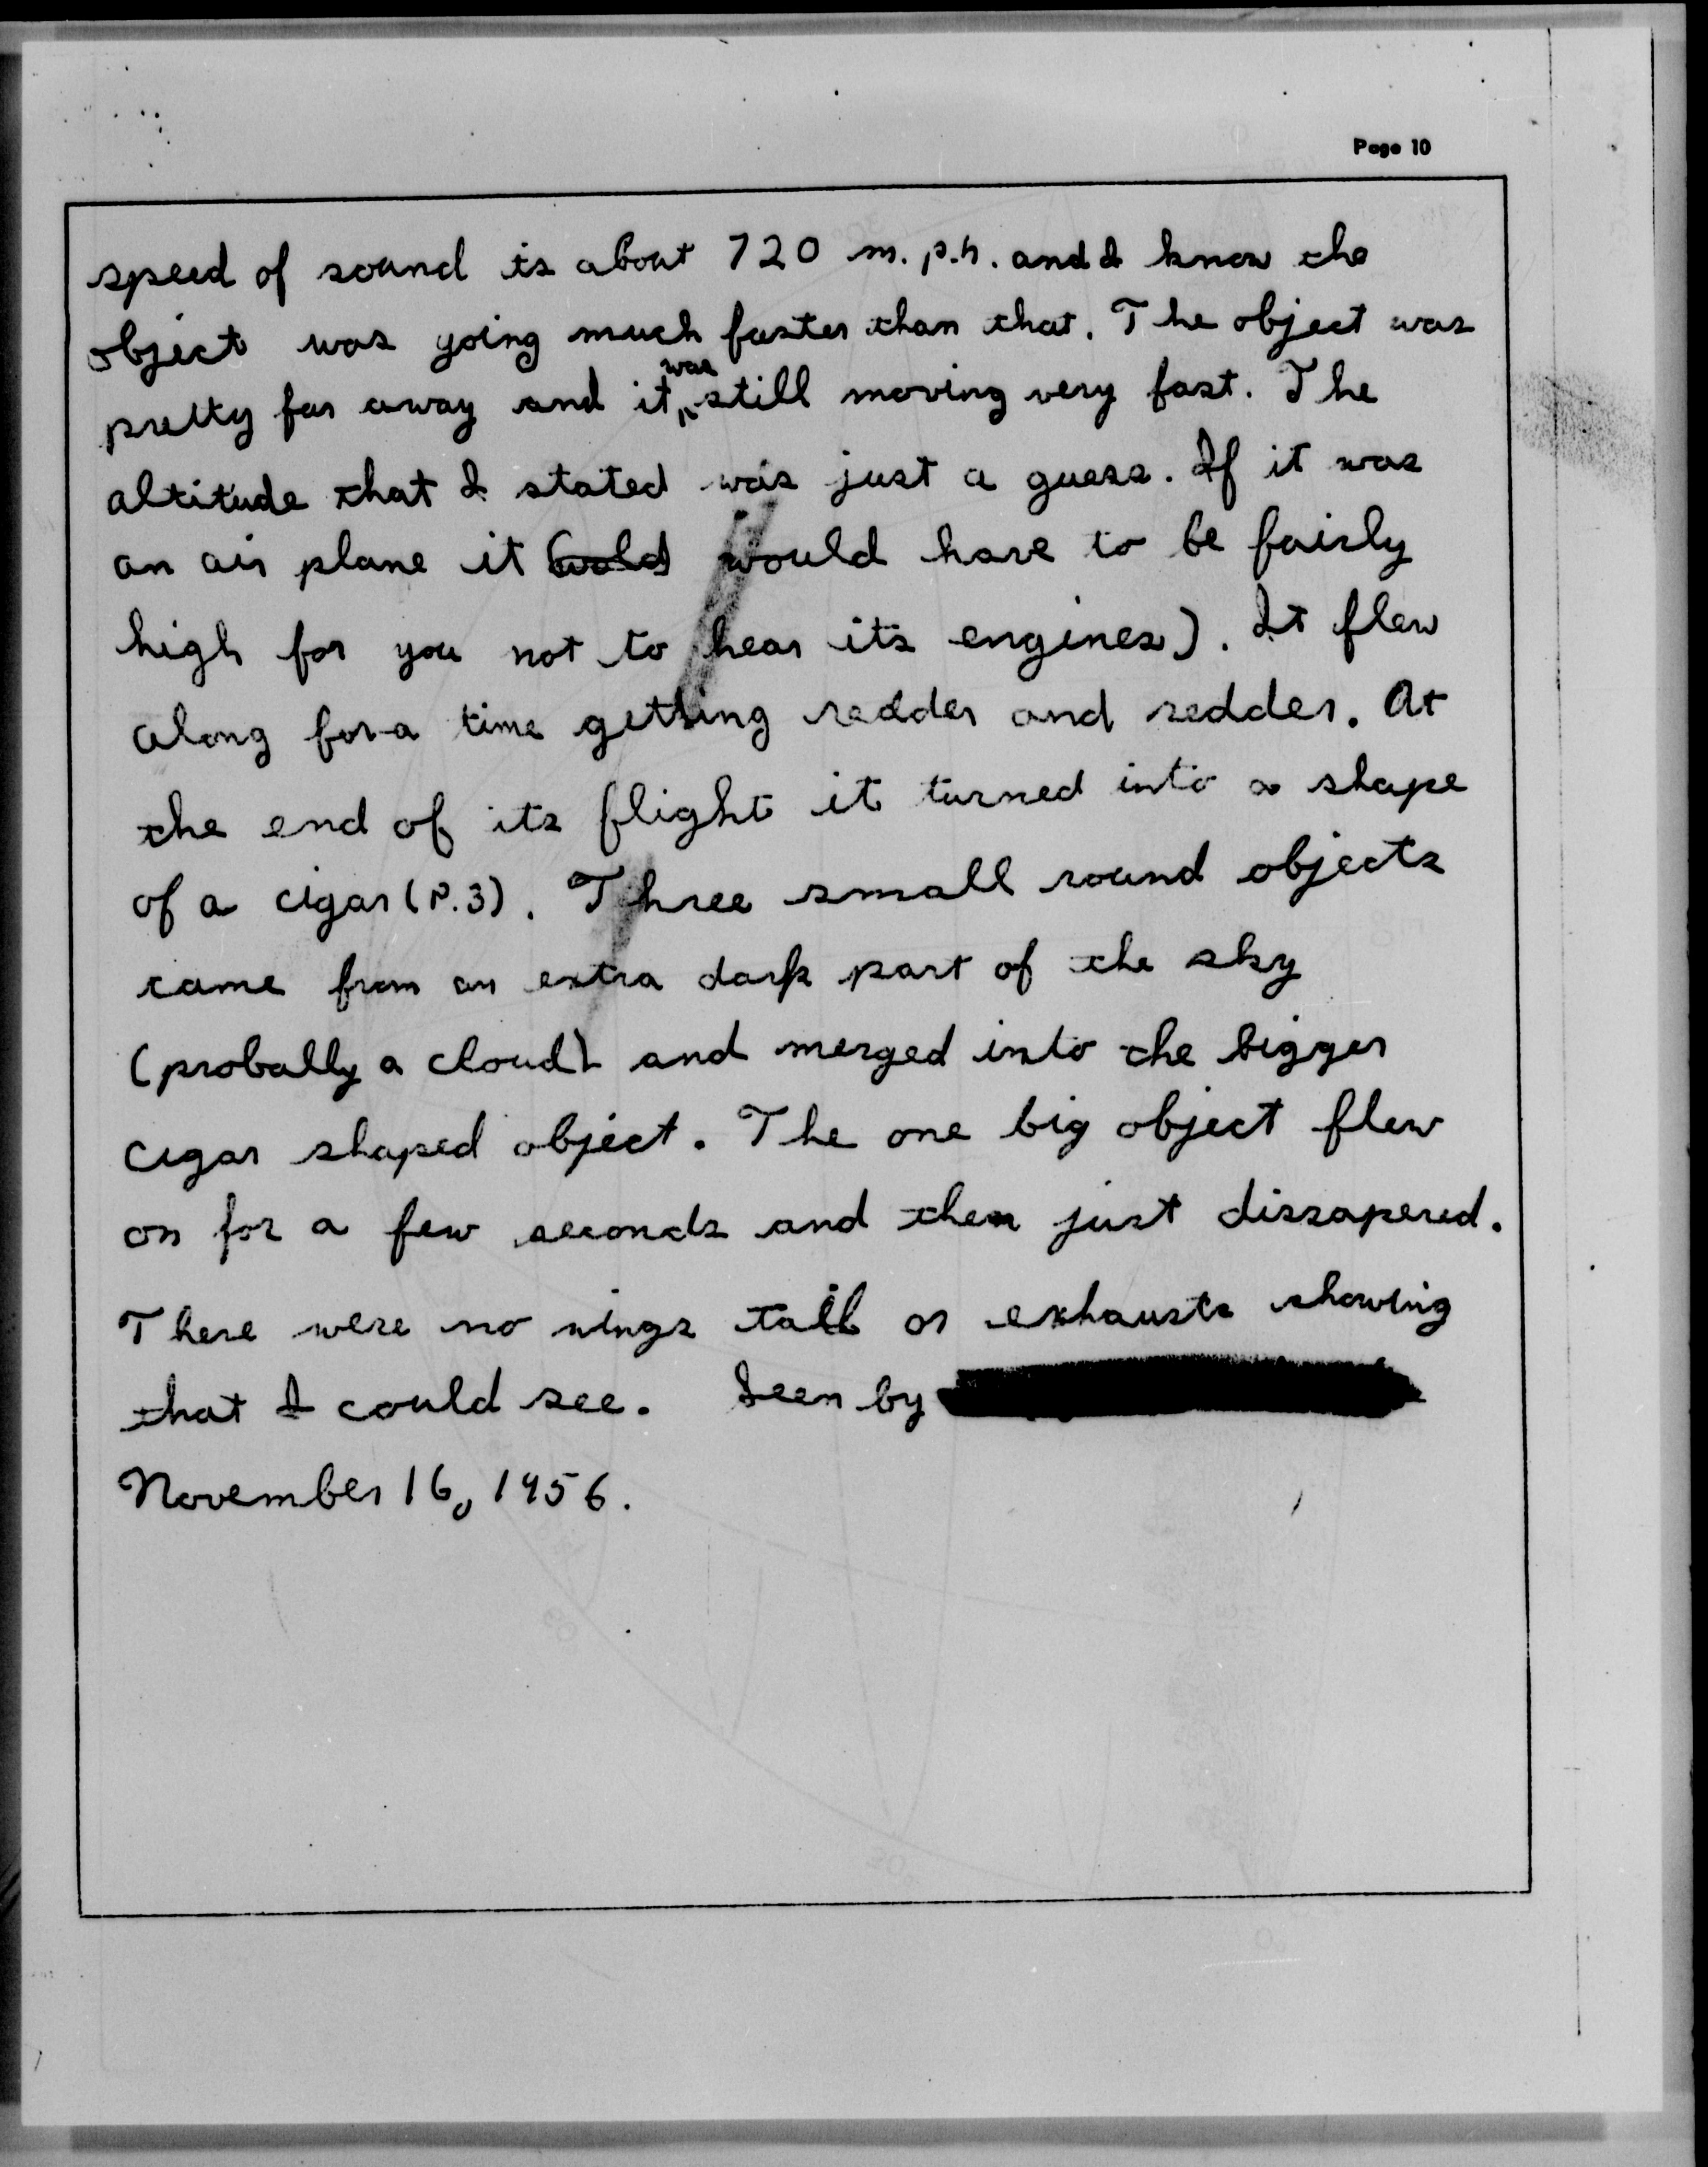 Page 10
speed of sound is about 720 m.p.h. and I know the
object was going much faster than that. The object was
pretty far away and it was still moving very fast. The
altitude that I stated was just a guess. If it was
an air plane it would have to be fairly
high for you not to hear its engines). It flew
along for a time getting redder and redder. At
the end of its flight it turned into a shape
of a cigar (P.3). Three small round objects
came from an extra dark part of the sky
(probally a cloud) and merged into the bigger
cigar shaped object. The one big object flew
on for a few seconds and then just dissapered.
There were no wings tail or exhausts showing
that I could see. Seen by
November 16, 1956.